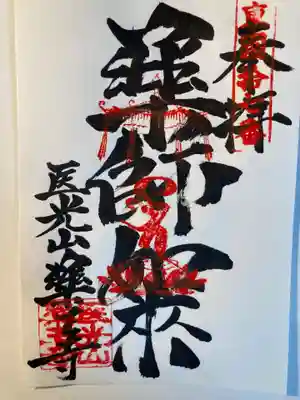 奉拝
薬師如来
医光山薬王寺